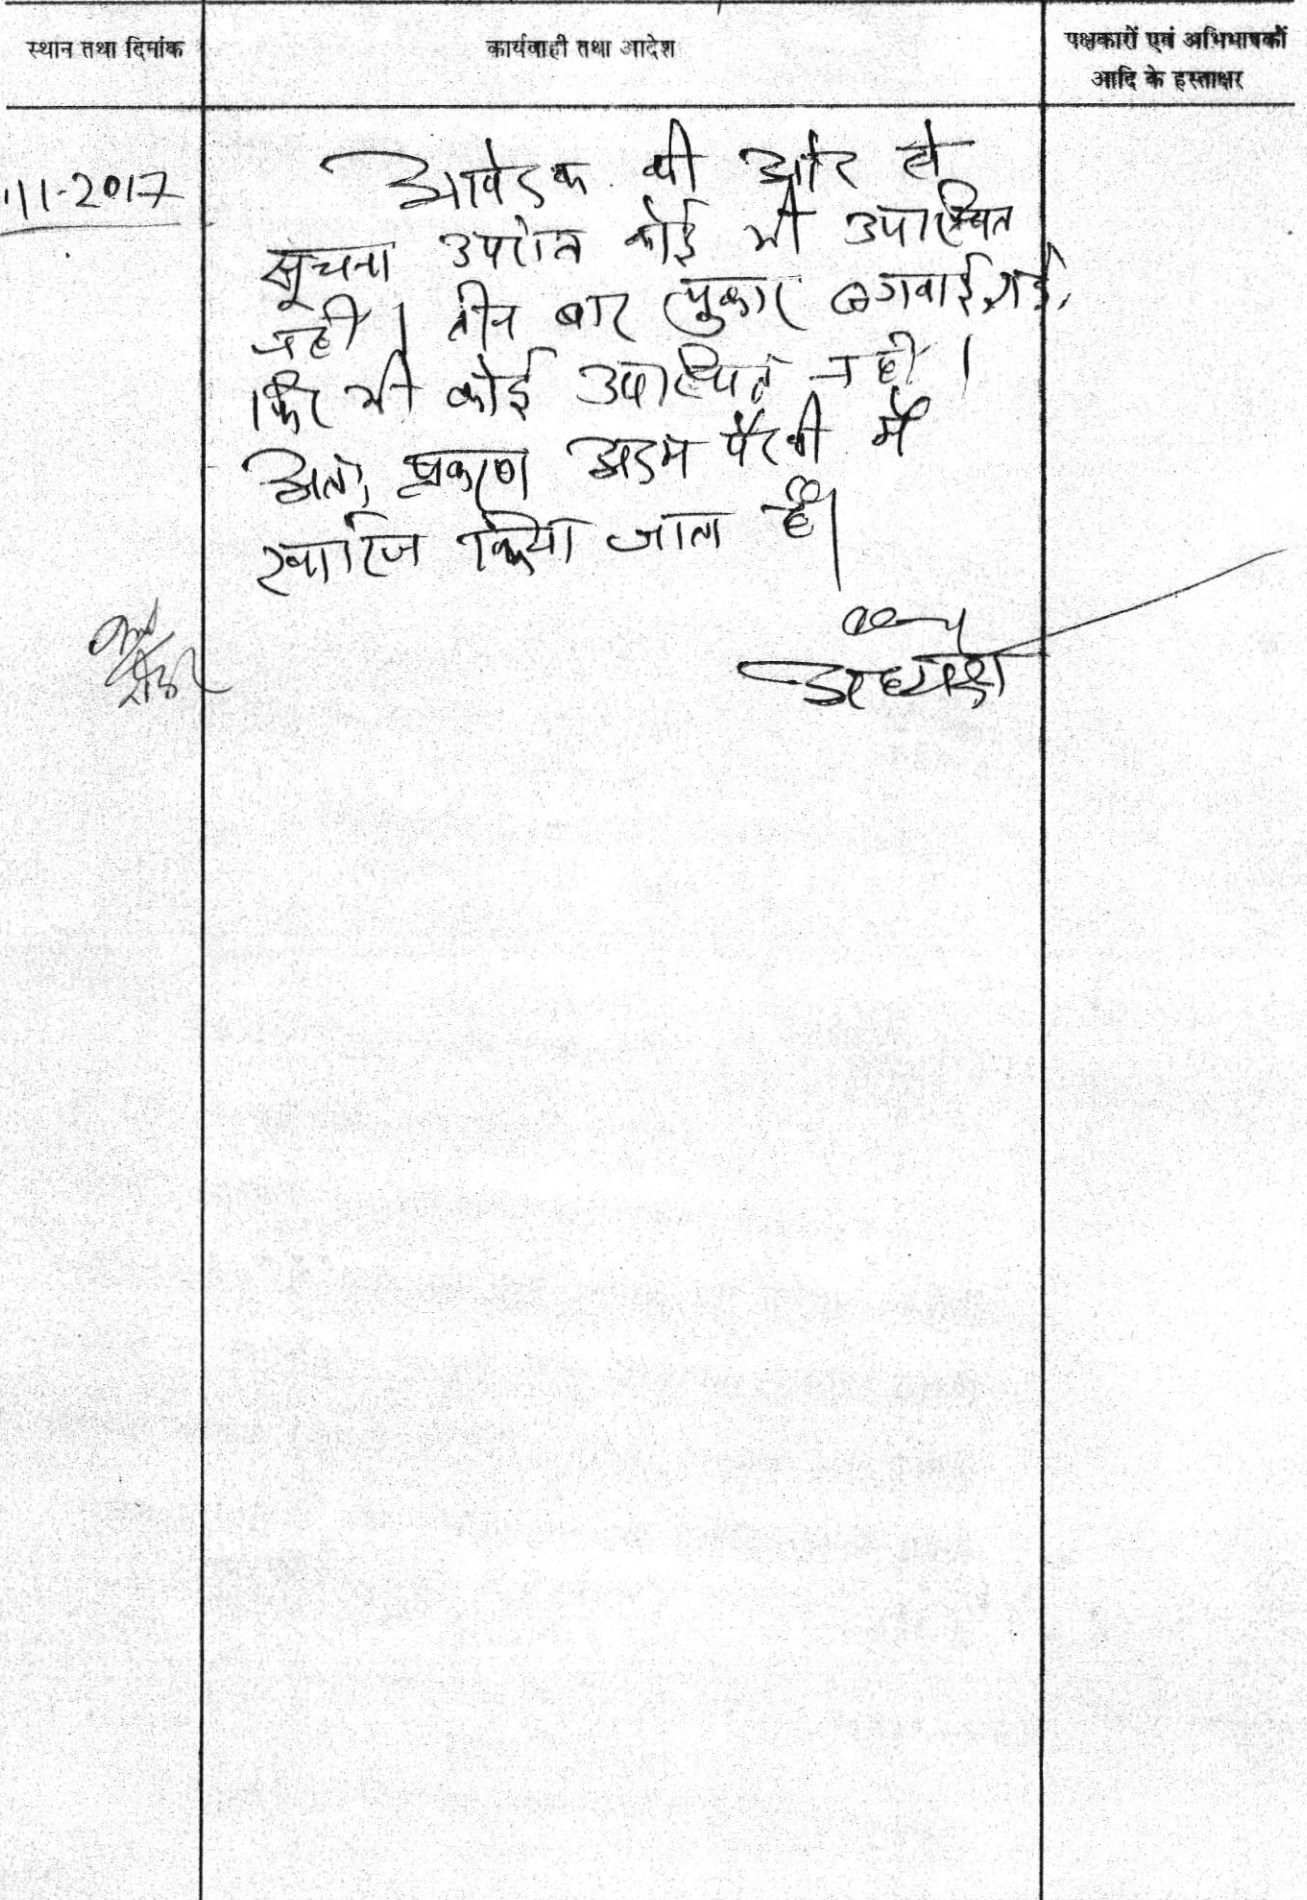 स्थान तथा दिनांक
कार्यवाही तथा आदेश
पक्षकारों एवं अभिभाषकों
आदि के हस्ताक्षर
11-2017
आवेदक की ओर से
सूचना उपरांत कोई भी उपस्थित
नहीं । तीन बार पुकार लगवाई गई,
फिर भी कोई उपस्थित नहीं ।
अतः प्रकरण अदम पैरवी में
खारिज किया जाता है।
अध्यक्ष